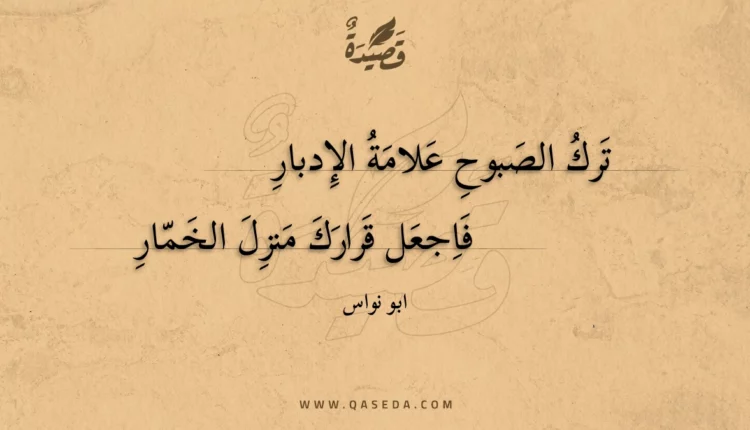 قَصِيدَةٌ
تَركُ الصَبوحِ عَلامَةُ الإِدبارِ
فَاِجعَل قَرارَكَ مَنزِلَ الخَمّارِ
ابو نواس
WWW.QASEDA.COM